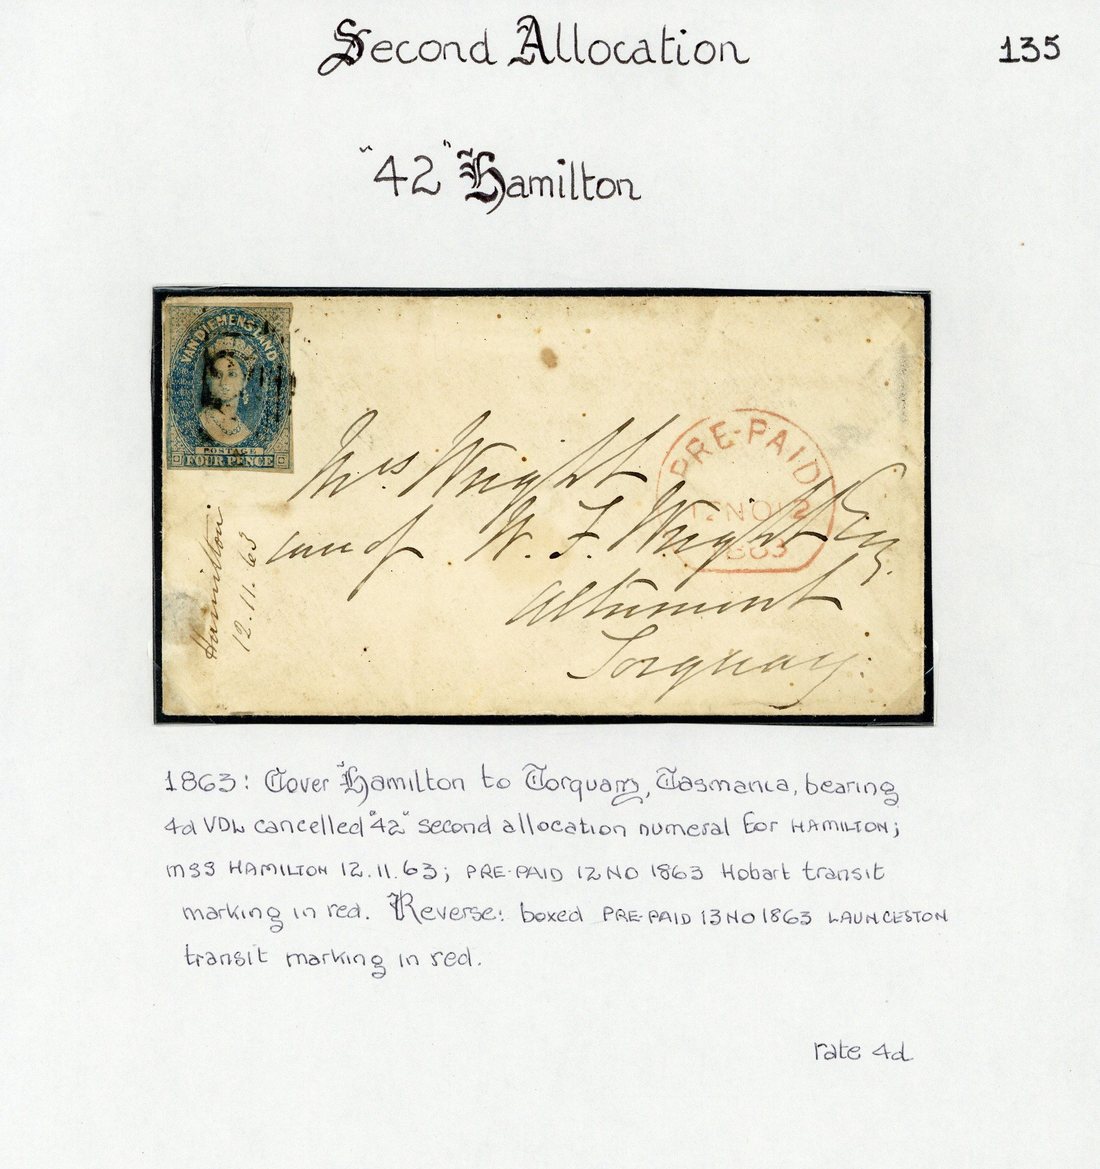 Second Allocation
135
"42" Hamilton
VAN DIEMENS LAND
POSTAGE
FOUR PENCE
Mrs Wright
care of W. F. Wright Esq.
Torquay.
PRE-PAID
12 NO 12
1863
Hamilton
12.11.63
1863: Cover Hamilton to Torquay, Tasmania, bearing
4d VDL cancelled "42" second allocation numeral for HAMILTON;
mss HAMILTON 12.11.63; PRE-PAID 12 NO 1863 Hobart transit
marking in red. Reverse: boxed PRE-PAID 13 NO 1863 LAUNCESTON
transit marking in red.
rate 4d